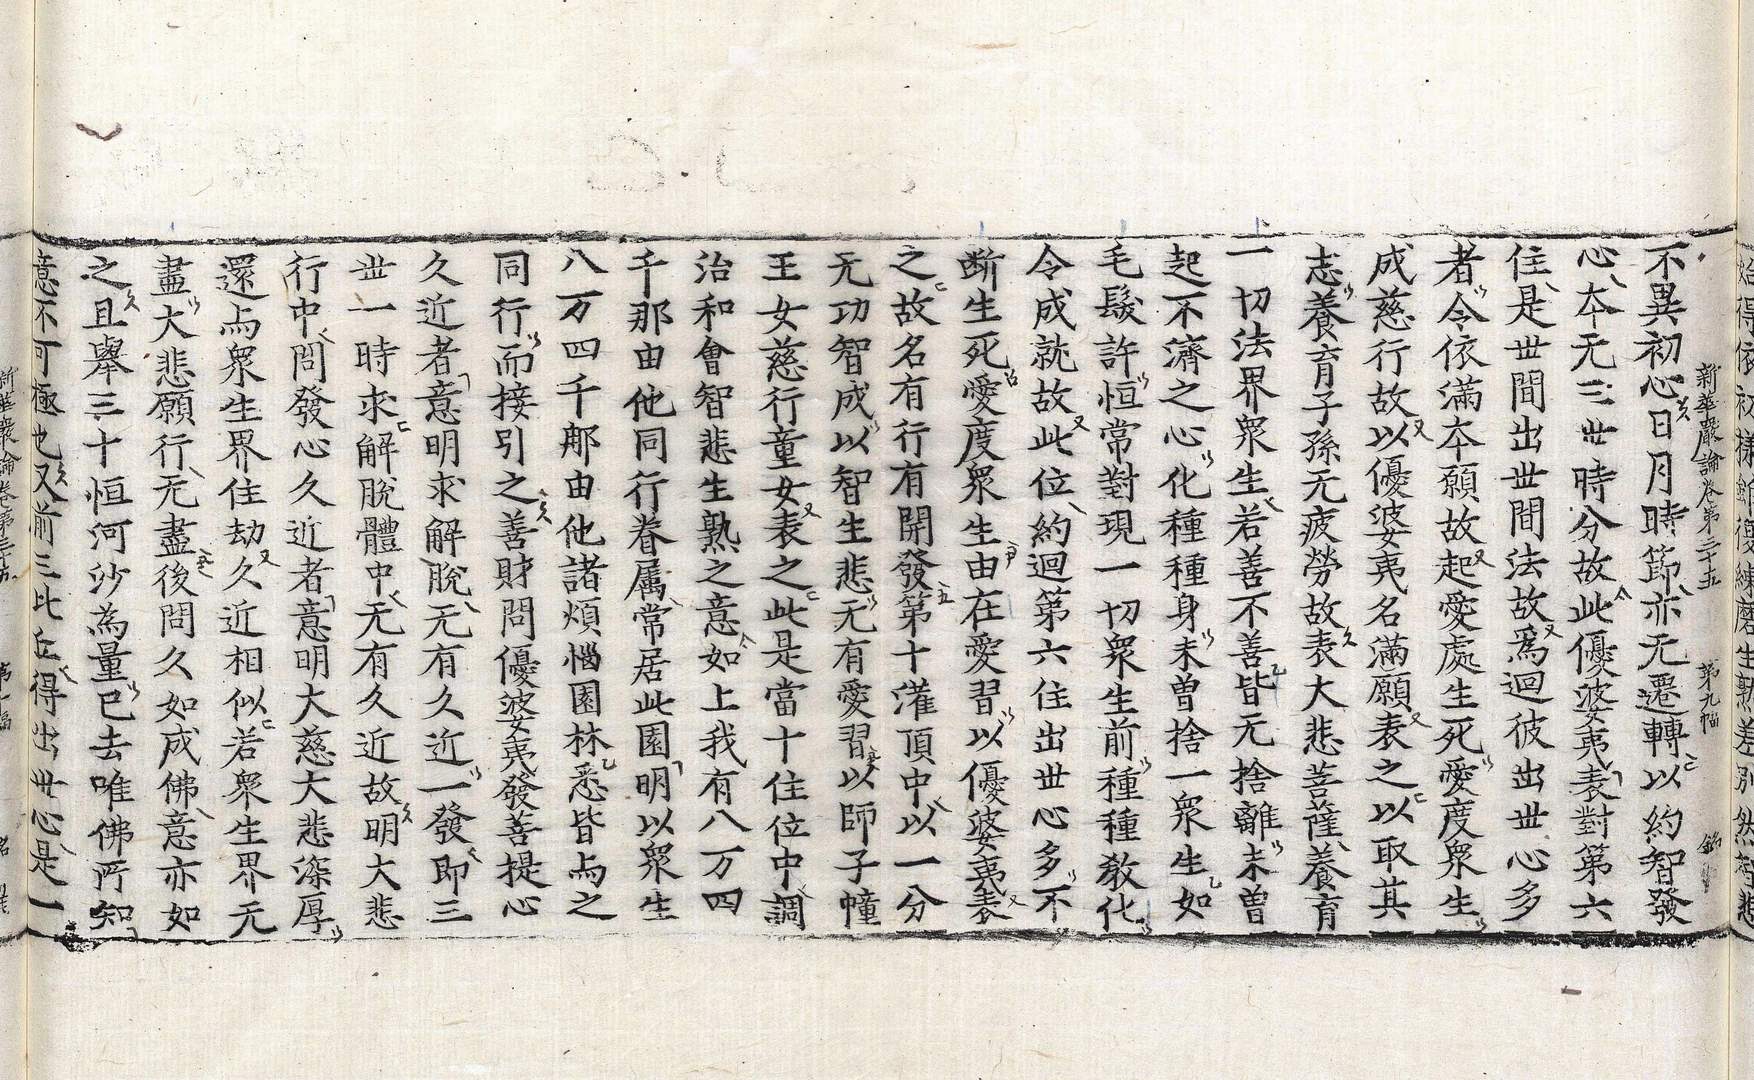 新華嚴論卷第三十五 第九幅
不異初心日月時節亦无遷轉以約智發
心本无三世時分故此優婆夷表對第六
住是世間出世間法故爲迴彼出世心多
者令依滿本願故起愛處生死愛度衆生
成慈行故以優婆夷名滿願表之以取其
志養育子孫无疲勞故表大悲菩薩養育
一切法界衆生若善不善皆无捨離未曾
起不濟之心化種種身未曾捨一衆生如
毛髮許恒常對現一切衆生前種種敎化
令成就故此位約迴第六住出世心多不
断生死愛度衆生由在愛習以優婆夷表
之故名有行有開發第十灌頂中以一分
无功智成以智生悲无有愛習以師子幢
王女慈行童女表之此是當十住位中調
治和會智悲生熟之意如上我有八万四
千那由他同行眷属常居此園明以衆生
八万四千郍由他諸煩惱園林悉皆与之
同行而接引之善財問優婆夷發菩提心
久近者意明求解脫无有久近一發即三
世一時求解脫體中无有久近故明大悲
行中問發心久近者意明大慈大悲深厚
還与衆生界住劫久近相似若衆生界无
盡大悲願行无盡後問久如成佛意亦如
之且舉三十恒河沙為量已去唯佛所知
意不可極也又前三比丘得出世心是一